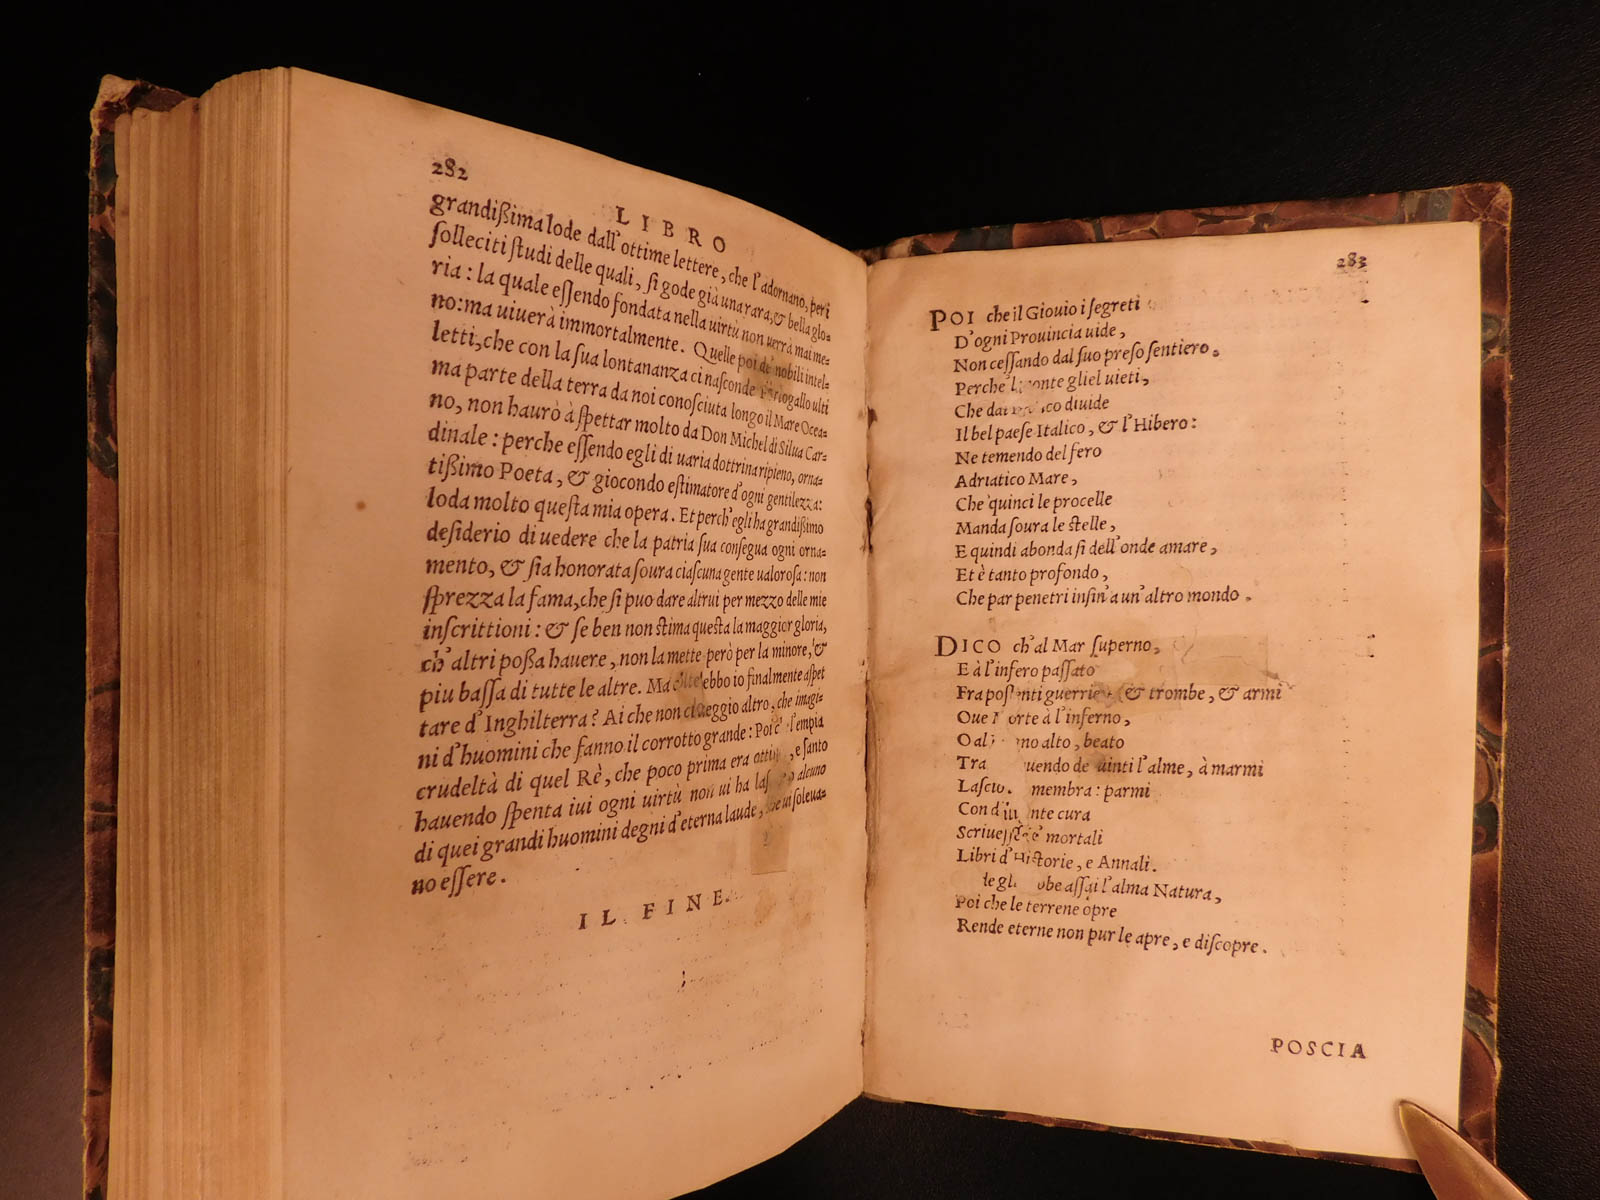 282
LIBRO
grandißima lode dall'ottime lettere, che l'adornano, per i
ſolleciti ſtudi delle quali, ſi gode già una rara, & bella glo-
ria: la quale eſſendo fondata nella uirtù non uerrà mai me-
no: ma uiuerà immortalmente. Quelle poi de' nobili intel-
letti, che con la ſua lontananza ci naſconde Portogallo ulti
ma parte della terra da noi conoſciuta longo il Mare Ocea-
no, non haurò à ſpettar molto da Don Michel di Silua Car-
dinale: perche eſſendo egli di uaria dottrina ripieno, orna-
tißimo Poeta, & giocondo eſtimatore d'ogni gentilezza:
loda molto queſta mia opera. Et perch'egli ha grandißimo
deſiderio di uedere che la patria ſua conſegua ogni orna-
mento, & ſia honorata ſoura ciaſcuna gente ualoroſa: non
ſprezza la fama, che ſi puo dare altrui per mezzo delle mie
inſcrittioni: & ſe ben non ſtima queſta la maggior gloria,
ch'altri poßa hauere, non la mette però per la minore, &
piu baſſa di tutte le altre. Ma io finalmente aſpet
tare d'Inghilterra? Ai che non altro, che imagi-
ni d'huomini che fanno il corrotto grande: Poi l'empia
crudeltà di quel Rè, che poco prima era e ſanto
hauendo ſpenta iui ogni uirtù non ui ha alcuno
di quei grandi huomini degni d'eterna laude, ui ſoleua-
no eſſere.
IL FINE.
283
POI che il Giouio i ſegreti
D'ogni Prouincia uide,
Non ceſſando dal ſuo preſo ſentiero.
Perche gliel uieti,
Che diuide
Il bel paeſe Italico, & l'Hibero:
Ne temendo del fero
Adriatico Mare,
Che quinci le procelle
Manda ſoura le ſtelle,
E quindi abonda ſi dell'onde amare,
Et è tanto profondo,
Che par penetri inſin'a un'altro mondo.
DICO ch'al Mar ſuperno,
E à l'infero paſſato
Fra poſſenti guerrie & trombe, & armi
Oue à l'inferno,
O al alto, beato
Tra l'alme, à marmi
membra: parmi
Con cura
Scriueſſe mortali
Libri d'Hiſtorie, e Annali.
aſſai l'alma Natura,
Poi che le terrene opre
Rende eterne non pur le apre, e diſcopre.
POSCIA